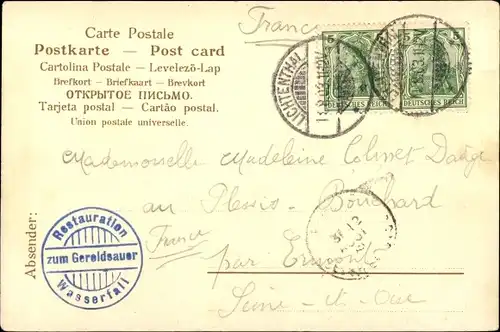 France
Carte Postale
Postkarte — Post card
Cartolina Postale — Levelezõ-Lap
Brefkort — Briefkaart — Brevkort
ОТКРЫТОЕ ПИСЬМО.
Tarjeta postal — Cartão postal.
Union postale universelle.
LICHTENTHAL
5 5
DEUTSCHES REICH
DEUTSCHES REICH
Mademoiselle Madeleine Colinet Daage
au Plessis-Bouchard
France
par Ermont
Seine-et-Oise
Absender:
Restauration
zum Geroldsauer
Wasserfall